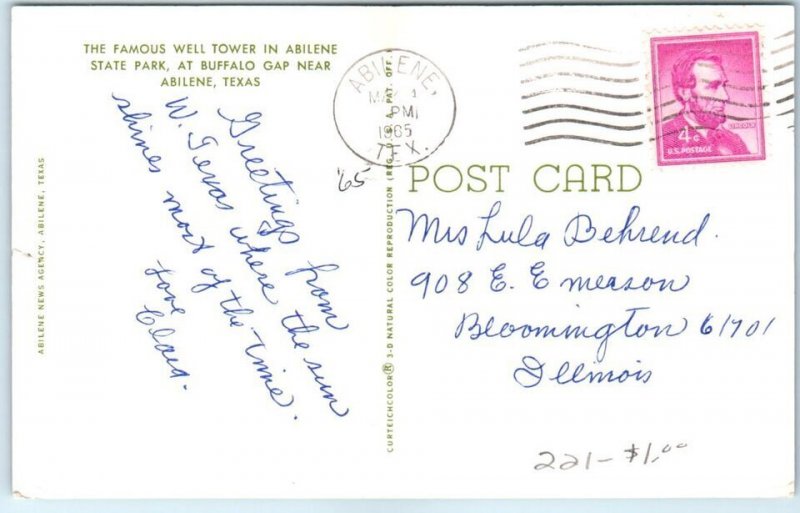 THE FAMOUS WELL TOWER IN ABILENE
STATE PARK, AT BUFFALO GAP NEAR
ABILENE, TEXAS
Greetings from
W. Texas where the sun
shines most of the time.
Love
Clara.
ABILENE NEWS AGENCY, ABILENE, TEXAS
CURTEICHCOLOR® 3-D NATURAL COLOR REPRODUCTION (REG. U.S.A. PAT. OFF.)
ABILENE,
PM
1965
TEX.
'65
LINCOLN
4¢
U.S. POSTAGE
POST CARD
Mrs Lula Behrend.
908 E. Emerson
Bloomington 61701
Illinois
221- $1.00